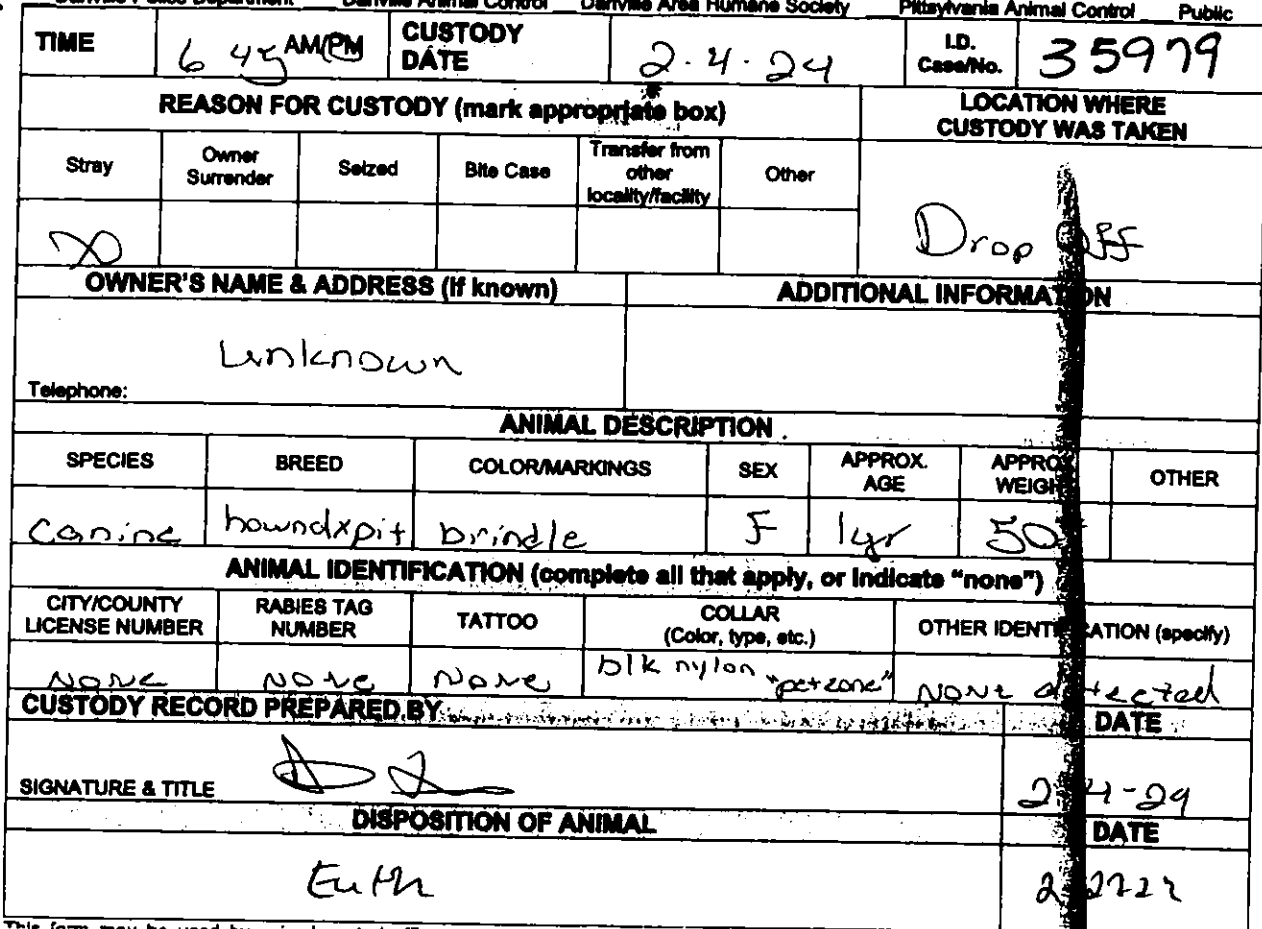 Danville Police Department Danville Animal Control Danville Area Humane Society Pittsylvania Animal Control Public
TIME 6 45 AM/PM CUSTODY DATE 2.4.24 I.D. Case/No. 35979
REASON FOR CUSTODY (mark appropriate box) LOCATION WHERE CUSTODY WAS TAKEN
Stray Owner Surrender Seized Bite Case Transfer from other locality/facility Other
X Drop Off
OWNER'S NAME & ADDRESS (if known) ADDITIONAL INFORMATION
Unknown
Telephone:
ANIMAL DESCRIPTION
SPECIES BREED COLOR/MARKINGS SEX APPROX. AGE APPROX. WEIGHT OTHER
Canine houndxpit brindle F 1yr 50
ANIMAL IDENTIFICATION (complete all that apply, or indicate "none")
CITY/COUNTY LICENSE NUMBER RABIES TAG NUMBER TATTOO COLLAR (Color, type, etc.) OTHER IDENTIFICATION (specify)
None None None blk nylon "petzone" None detected
CUSTODY RECORD PREPARED BY DATE
SIGNATURE & TITLE 2-4-24
DISPOSITION OF ANIMAL DATE
Euth
This form may be used by